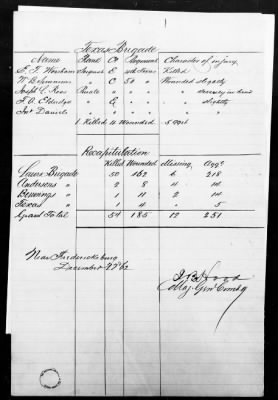 Texas Brigade
Name Rank Co Regiment Character of injury
Sergeant E 4th Texas Killed
" C 5th " Wounded slightly
Private " " " severely in hand
" E " " slightly
Jno Daniels " " " "
1 Killed 4 Wounded 5 Aggt
Recapitulation
Killed Wounded Missing Aggt
Laws Brigade 50 162 6 218
Andersons " 2 8 4 14
Bennings " 1 11 2 14
Texas " 1 4 " 5
Grand Total 54 185 12 251
Near Fredericksburg
December 27th/62
J B Hood
Maj. Genl Comdg